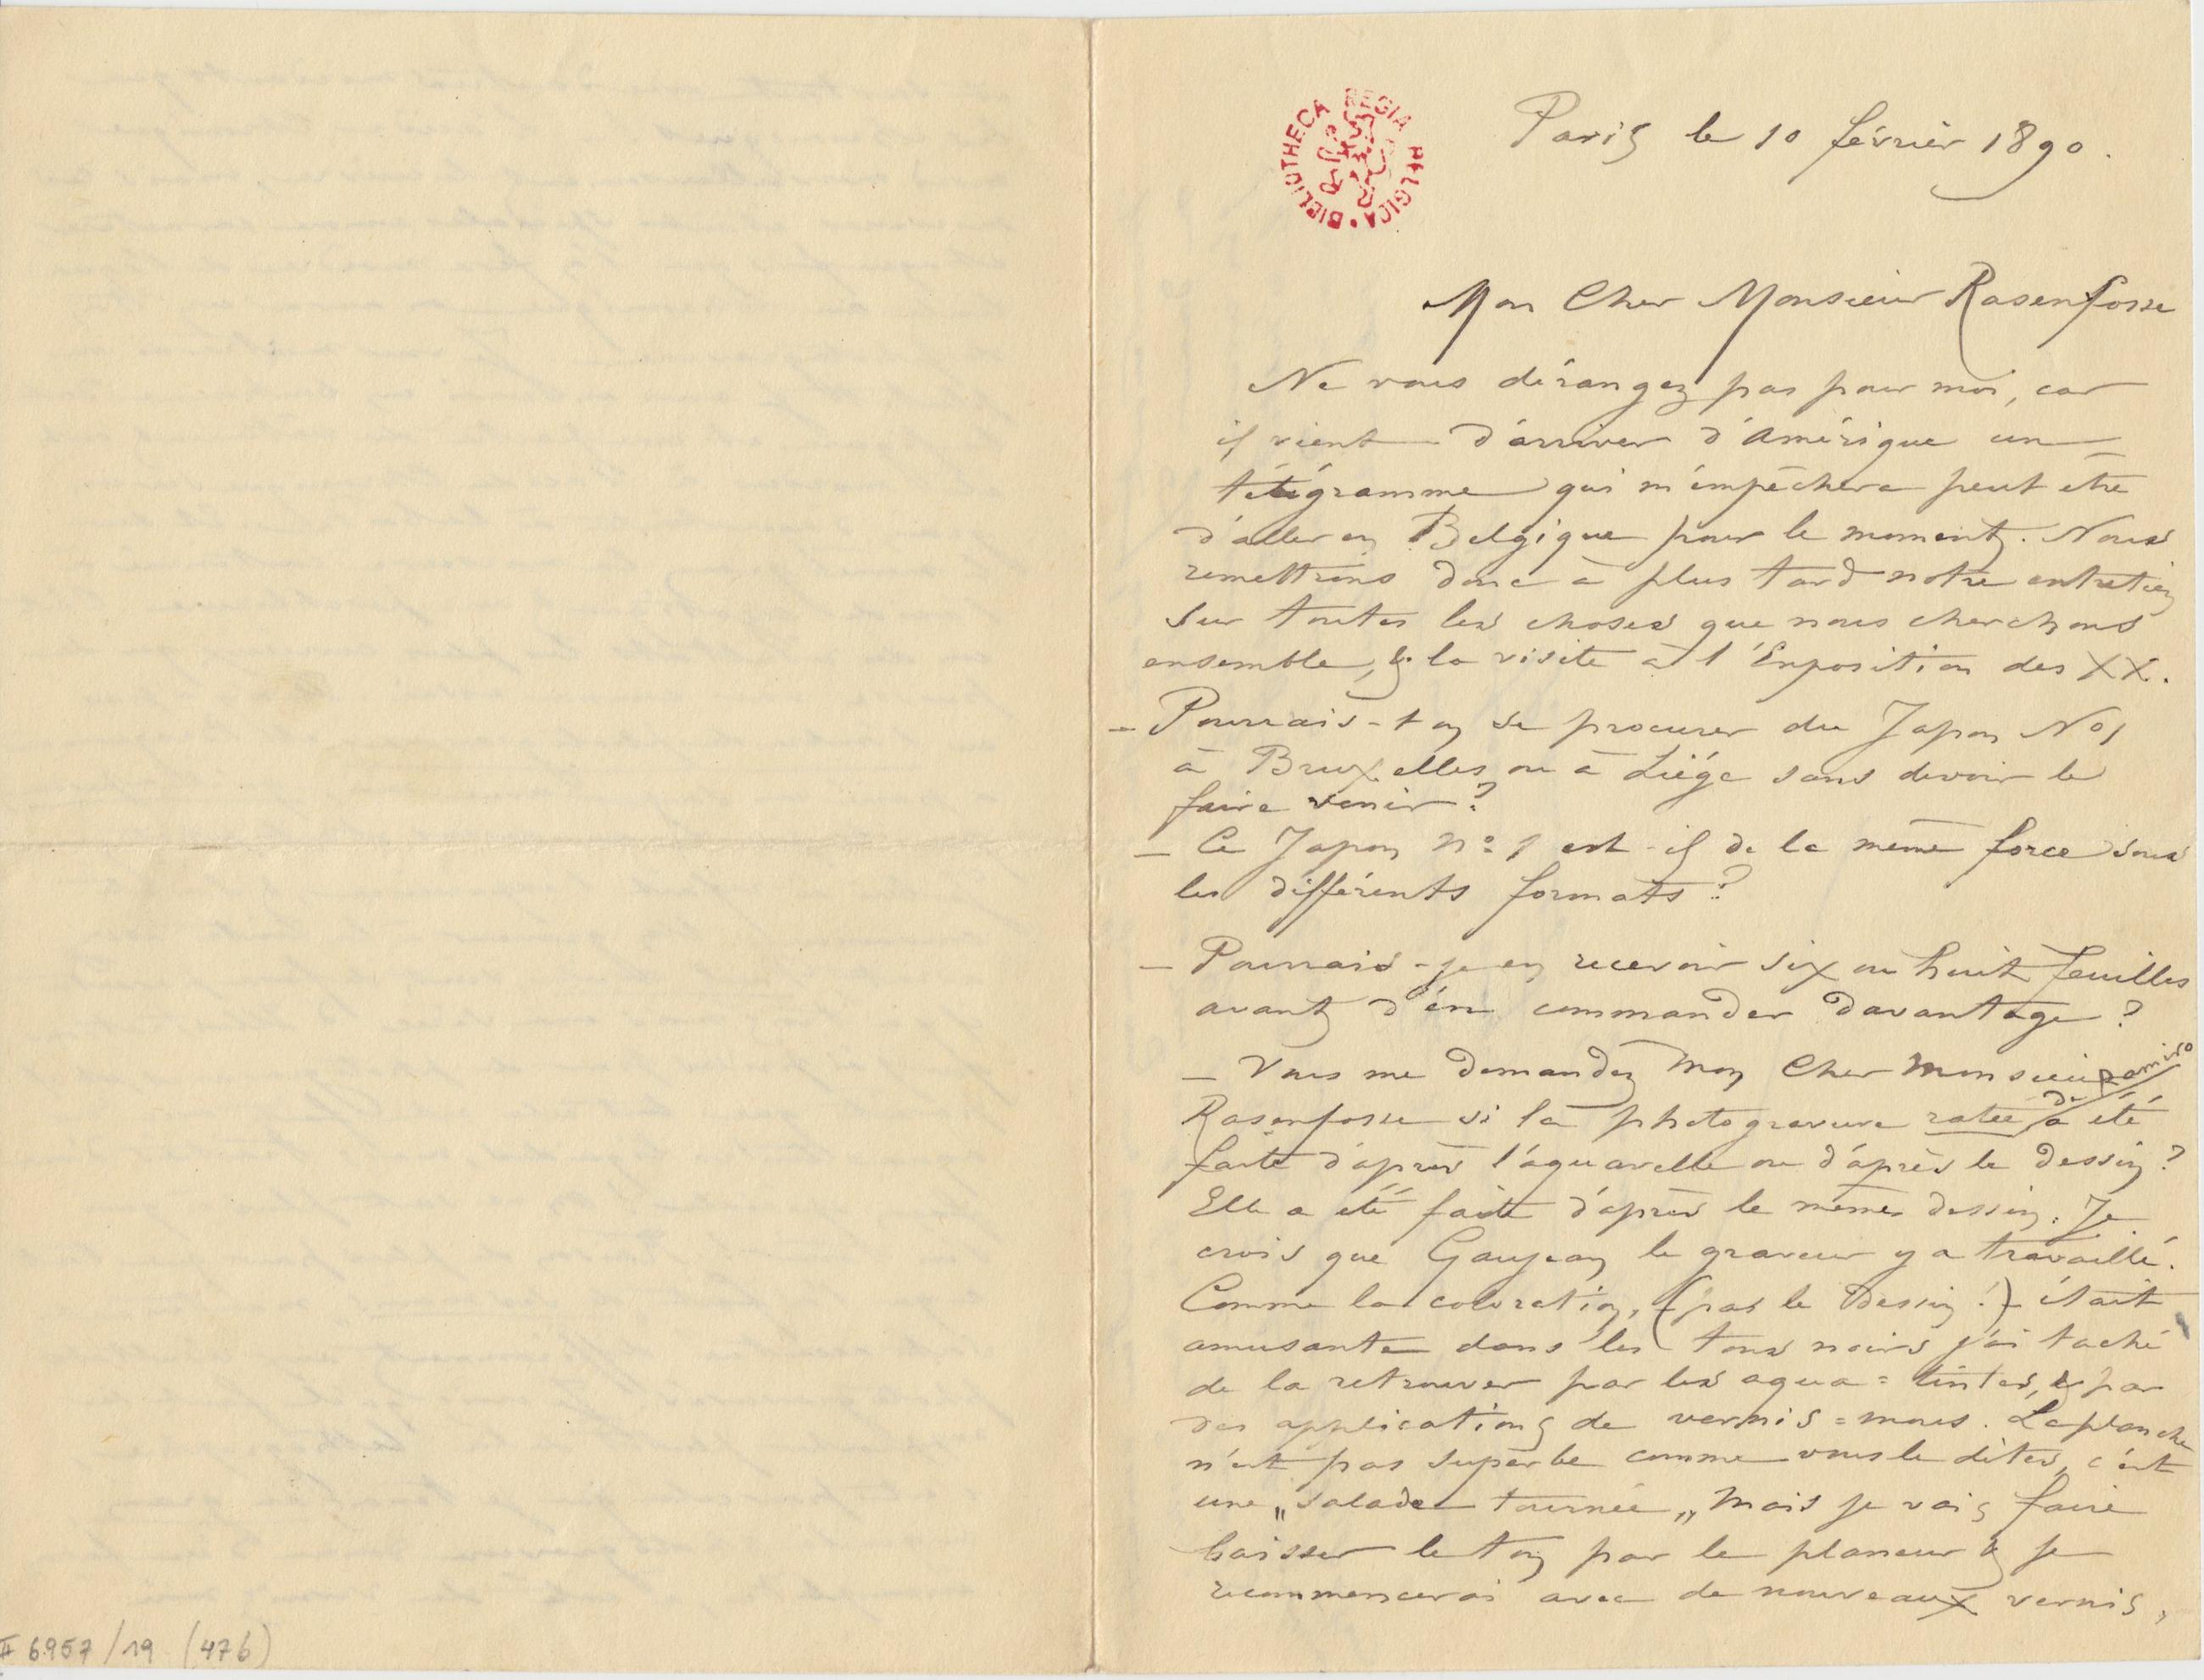 BIBLIOTHECA REGIA BELGICA
Paris le 10 février 1890.
Mon Cher Monsieur Rasenfosse
Ne vous dérangez pas pour moi, car
il vient d'arriver d'Amérique un
télégramme qui m'empêchera peut etre
d'aller en Belgique pour le moment. Nous
remettrons donc à plus tard notre entretien
sur toutes les choses que nous cherchons
ensemble, & la visite à l'Exposition des XX.
– Pourrais-t on se procurer du Japon No 1
à Bruxelles ou à Liége sans devoir le
faire venir?
– Ce Japon no 1 est-il de la même force sous
les différents formats?
– Pourrais-je en recevoir six ou huit feuilles
avant d'en commander davantage?
– Vous me demandez Mon Cher Monsieur
Rasenfosse si la photogravure ratée de Ramiro a été
faite d'après l'aquarelle ou d'après le dessin?
Elle a été faite d'après le même dessin. Je
crois que Gaujean le graveur y a travaillé.
Comme la coloration, (pas le dessin!) était
amusante dans les tons noirs j'ai taché
de la retrouver par les aqua=tintes, & par
des applications de vernis=mous. La planche
n'est pas superbe comme vous le dites, c'est
une „salade tournée„ Mais je vais faire
baisser le ton par le planeur & je
recommencerai avec de nouveaux vernis,
II 6957/19 (476)